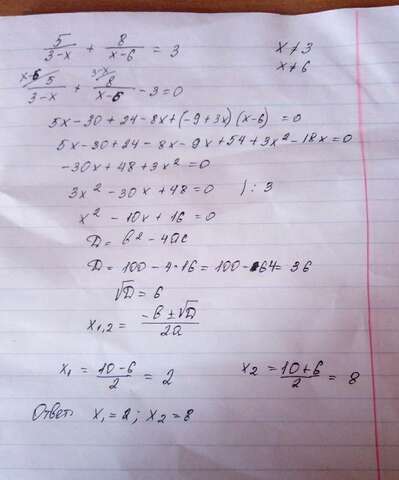 5/(3-x) + 8/(x-6) = 3    x ≠ 3
x ≠ 6
x-6 5/(3-x) + 3-x 8/(x-6) - 3 = 0
5x - 30 + 24 - 8x + (-9 + 3x)(x-6) = 0
5x - 30 + 24 - 8x - 9x + 54 + 3x² - 18x = 0
-30x + 48 + 3x² = 0
3x² - 30x + 48 = 0 | : 3
x² - 10x + 16 = 0
D = b² - 4ac
D = 100 - 4·16 = 100 - 64 = 36
√D = 6
x₁,₂ = (-b ± √D)/(2a)
x₁ = (10-6)/2 = 2    x₂ = (10+6)/2 = 8
Ответ: x₁ = 2; x₂ = 8